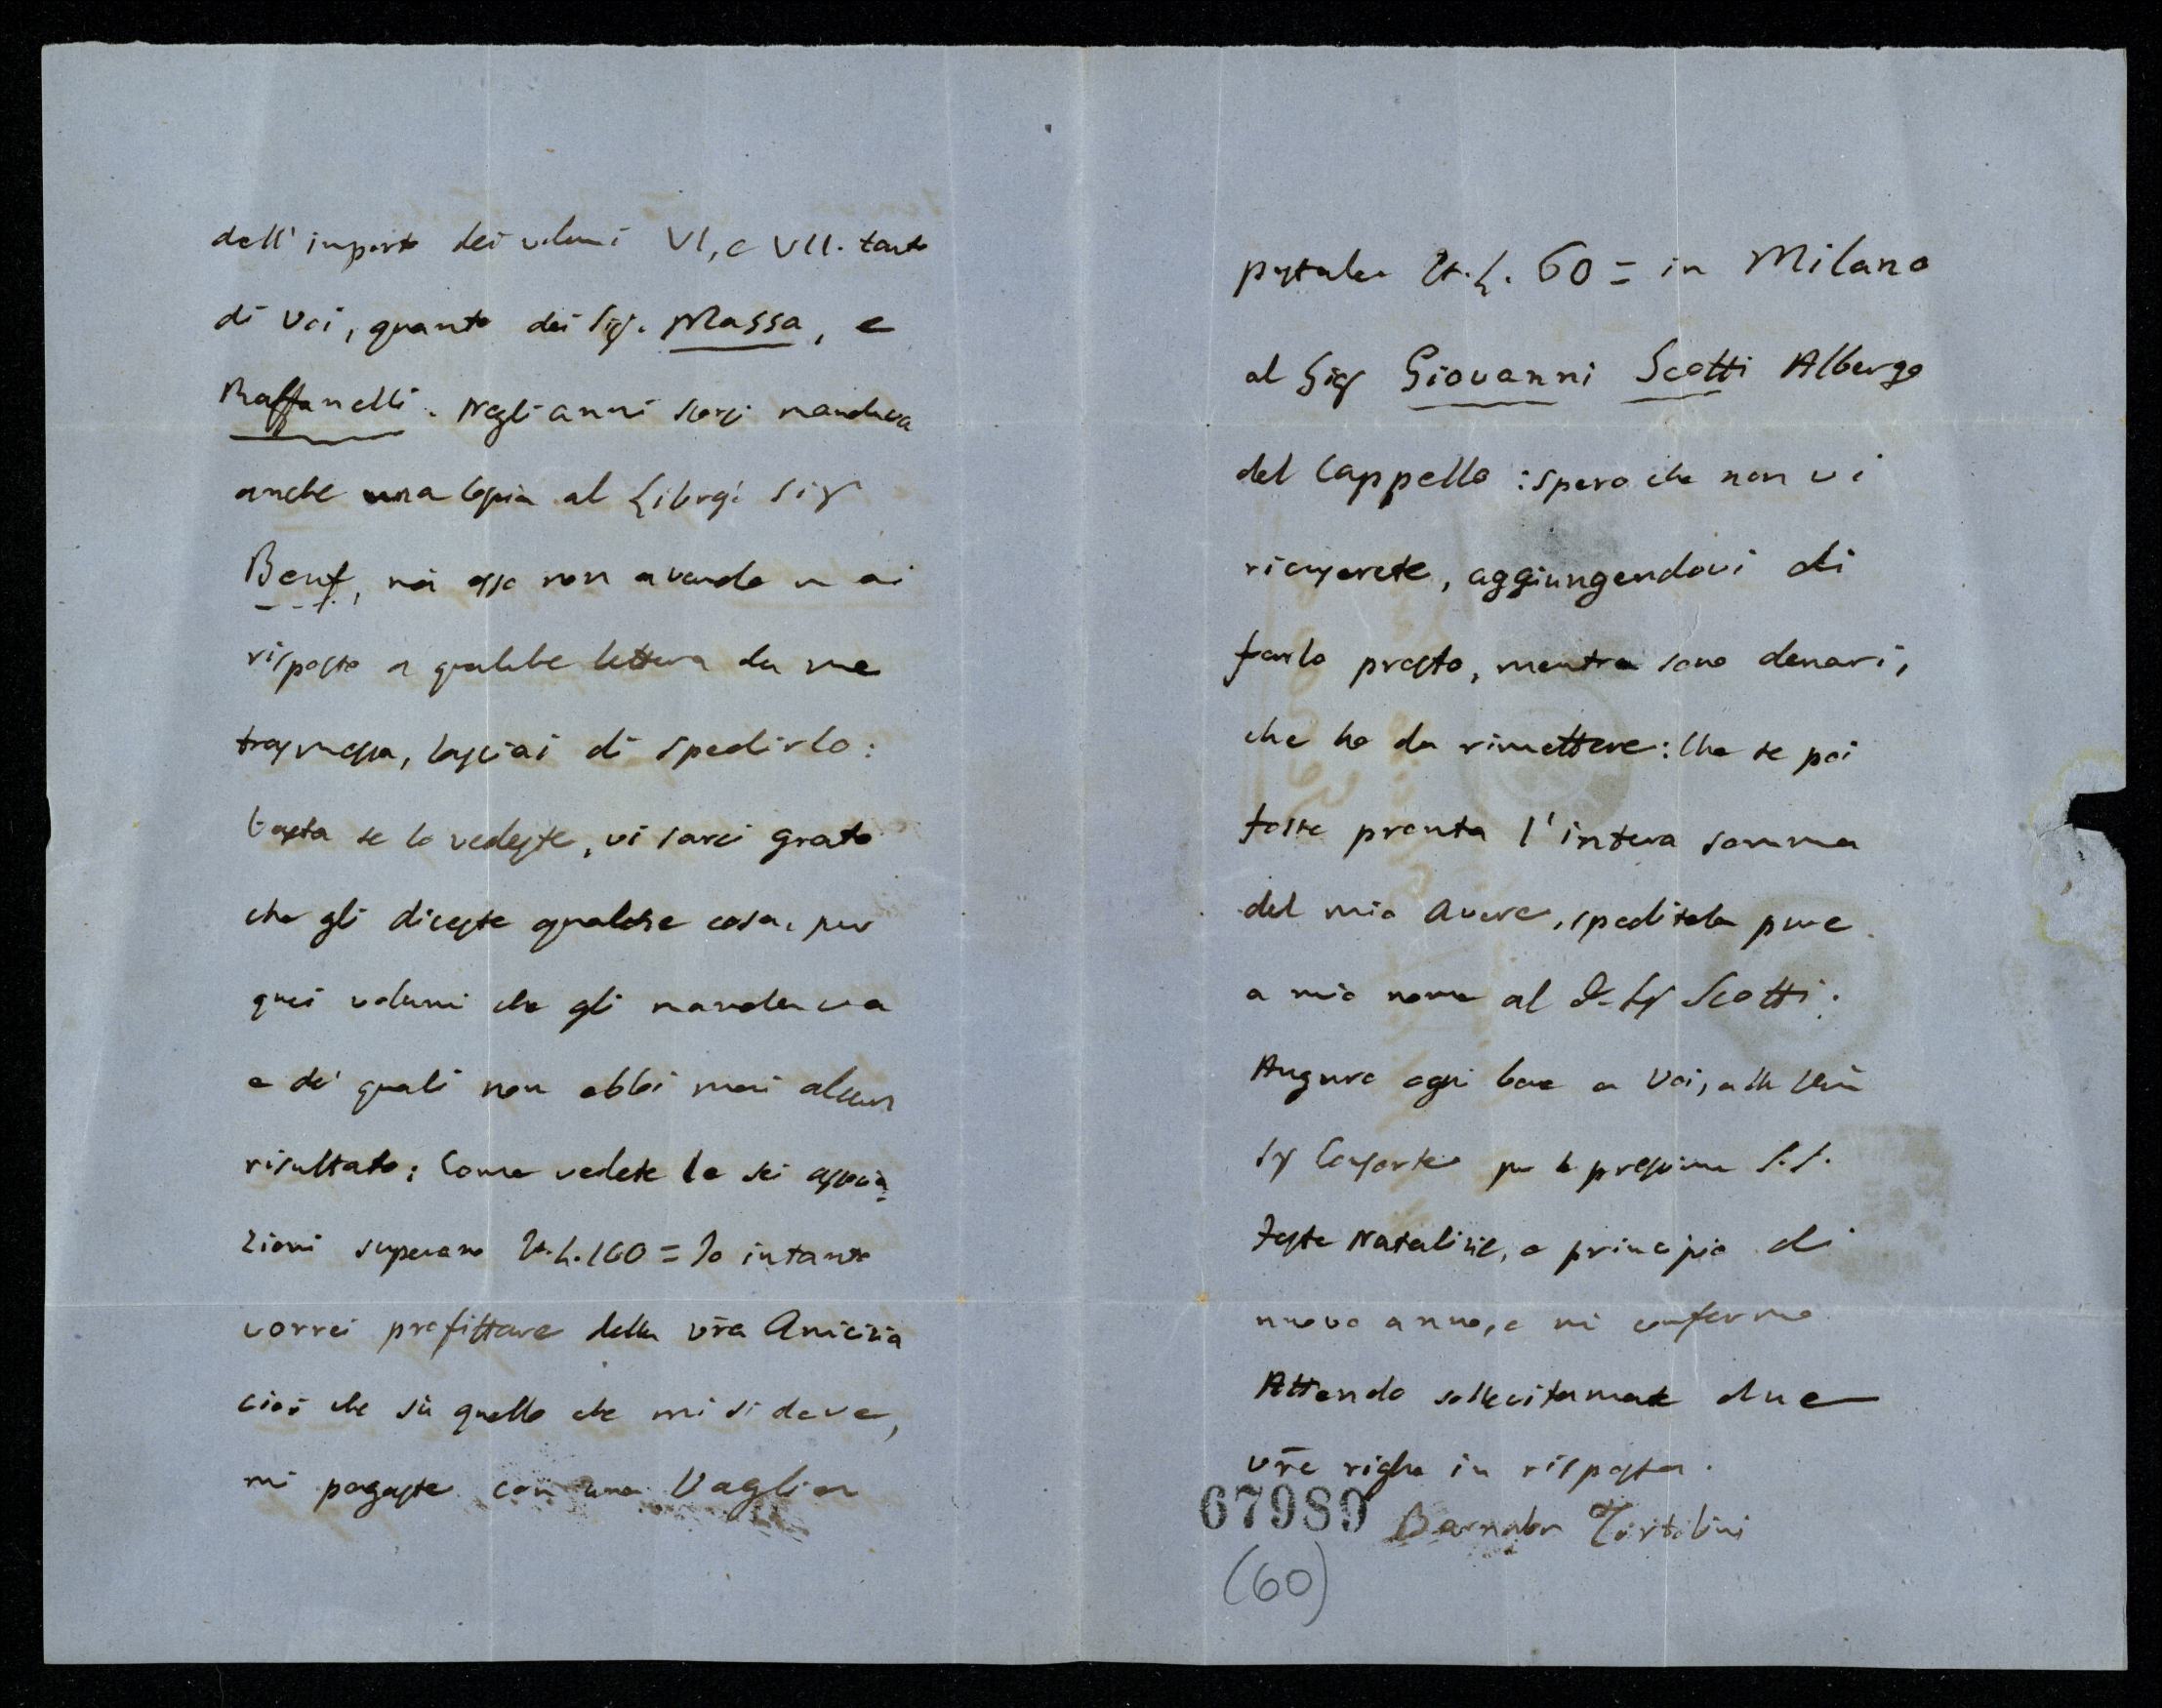 dell' importo dei volumi VI, e VII. tanto
di Voi, quanto dei Sigi. Massa, e
Raffanelli. Negli anni scorsi mandava
anche una Copia al Libraj. Sigr
Beuf, mà esso non avendo mai
risposto a qualche lettera da me
trasmessa, lasciai di spedirlo:
basta se lo vedeste, vi sarei grato
che gli diceste qualche cosa, per
quei volumi che gli mandava
e dei quali non ebbi mai alcun
risultato: Come vedete le sei associa=
zioni superano It. L. 160 = Io intanto
vorrei profittare della vr̃a Amicizia
cioè che sù quello che mi si deve,
mi pagaste con una Vaglia
postale It. L. 60 = in Milano
al Sigr Giovanni Scotti Albergo
del Cappello: spero che non vi
ricuserete, aggiungendovi di
farlo presto, mentre sono denari,
che ho da rimettere: Che se poi
fosse pronta l'intera somma
del mio avere, speditela pure
a mio nome al Sigr Scotti:
Auguro ogni bene a Voi, alla Vr̃a
Sigr Consorte per le prossime S.S.
Feste Natalizie, e principio di
nuovo anno, e mi confermo
Attendo sollecitamente due
vr̃e righe in risposta.
67989 Barnaba Tortolini
(60)